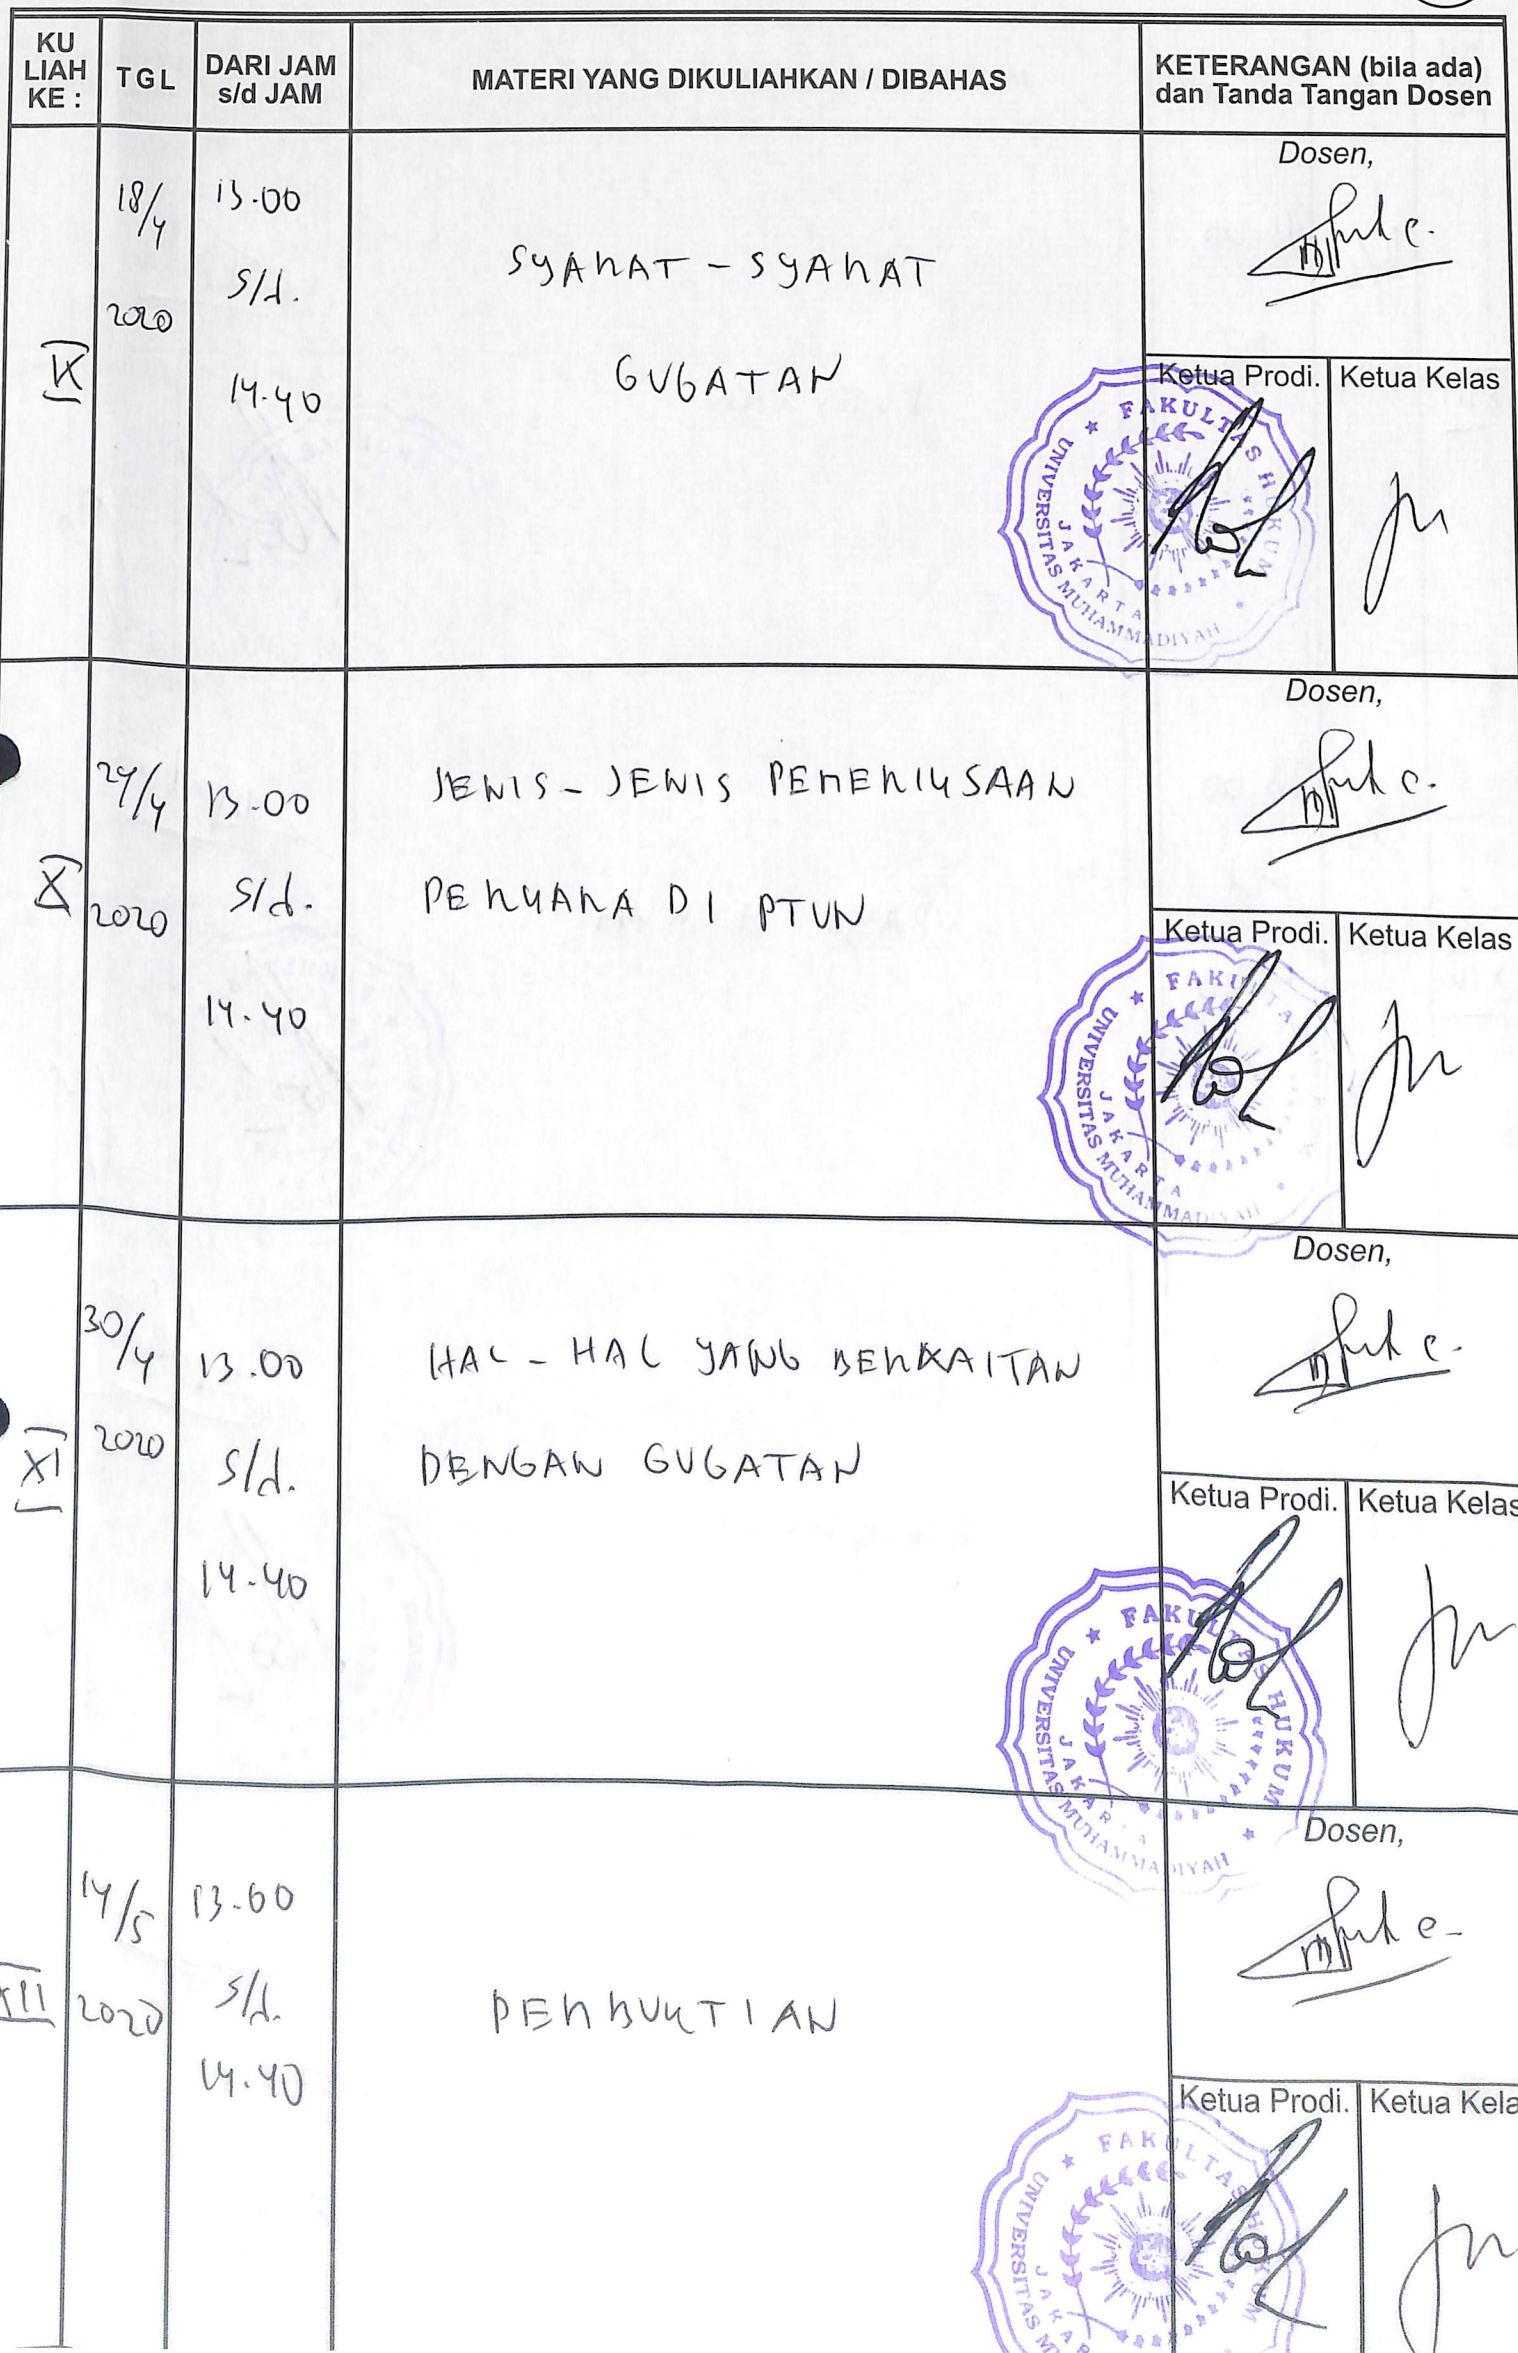 KU LIAH KE :
TGL
DARI JAM s/d JAM
MATERI YANG DIKULIAHKAN / DIBAHAS
KETERANGAN (bila ada) dan Tanda Tangan Dosen
IX
18/4
2020
13.00
s/d.
14.40
SYARAT - SYARAT
GUGATAN
Dosen,
Ketua Prodi.
Ketua Kelas
FAKULTAS HUKUM
UNIVERSITAS MUHAMMADIYAH
JAKARTA
X
24/4
2020
13.00
s/d.
14.40
JENIS - JENIS PEMERIKSAAN
PERKARA DI PTUN
Dosen,
Ketua Prodi.
Ketua Kelas
FAKULTA
UNIVERSITAS MUHAMMADIYAH
JAKARTA
XI
30/4
2020
13.00
s/d.
14.40
HAL - HAL YANG BERKAITAN
DENGAN GUGATAN
Dosen,
Ketua Prodi.
Ketua Kelas
FAKULTAS HUKUM
UNIVERSITAS MUHAMMADIYAH
JAKARTA
XII
14/5
2020
13.00
s/d.
14.40
PEMBUKTIAN
Dosen,
Ketua Prodi.
Ketua Kela
FAKULTAS HUKUM
UNIVERSITAS M
JAKAR